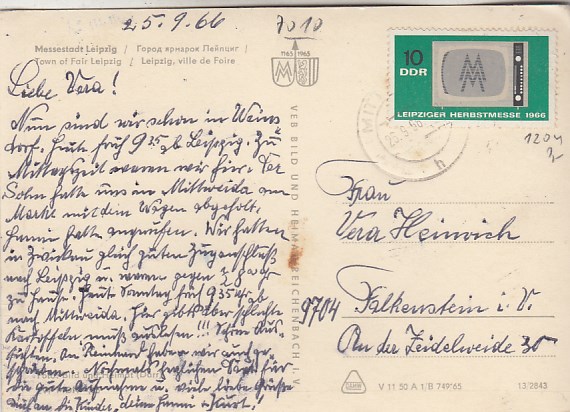 25.9.66
7010
Messestadt Leipzig / Город ярмарок Лейпциг /
Town of Fair Leipzig / Leipzig, ville de Foire
1165 1965
10
DDR
LEIPZIGER HERBSTMESSE 1966
Liebe Vera!
Nun sind wir schon in
Heute früh 9 35 ab Leipzig. Zu
Mittagszeit waren wir hier. Der
Sohn hatte uns in Mittweida am
Markt mit dem Wagen abgeholt,
hatte angerufen. Wir hatten
in Zwickau gleich guten Zuganschluß
nach Leipzig u. waren gegen
zu Hause. Heute Sonntag früh 9 35 ab
nach Mittweida. Hier gibt aber schlechte
Kartoffeln muß auslesen!!!
haben wir auch
Nochmals herzlichen Dank für
die gute Aufnahme u. viele liebe Grüße
auch an die Kinder, deine u. Kurt!
VEB BILD UND HEIMAT REICHENBACH I. V.
Frau
Vera Heinrich
9704 Falkenstein i. V.
An der Zeidelweide 30
V 11 50 A 1/B 749/65
13/2843